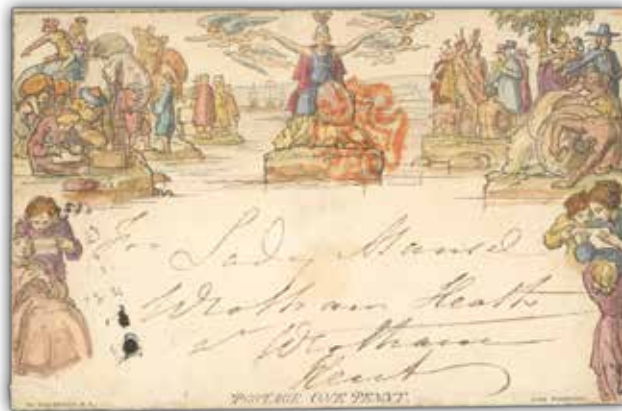 For Lady Mansel
Wrotham Heath
Nr Wrotham
Kent
POSTAGE ONE PENNY.